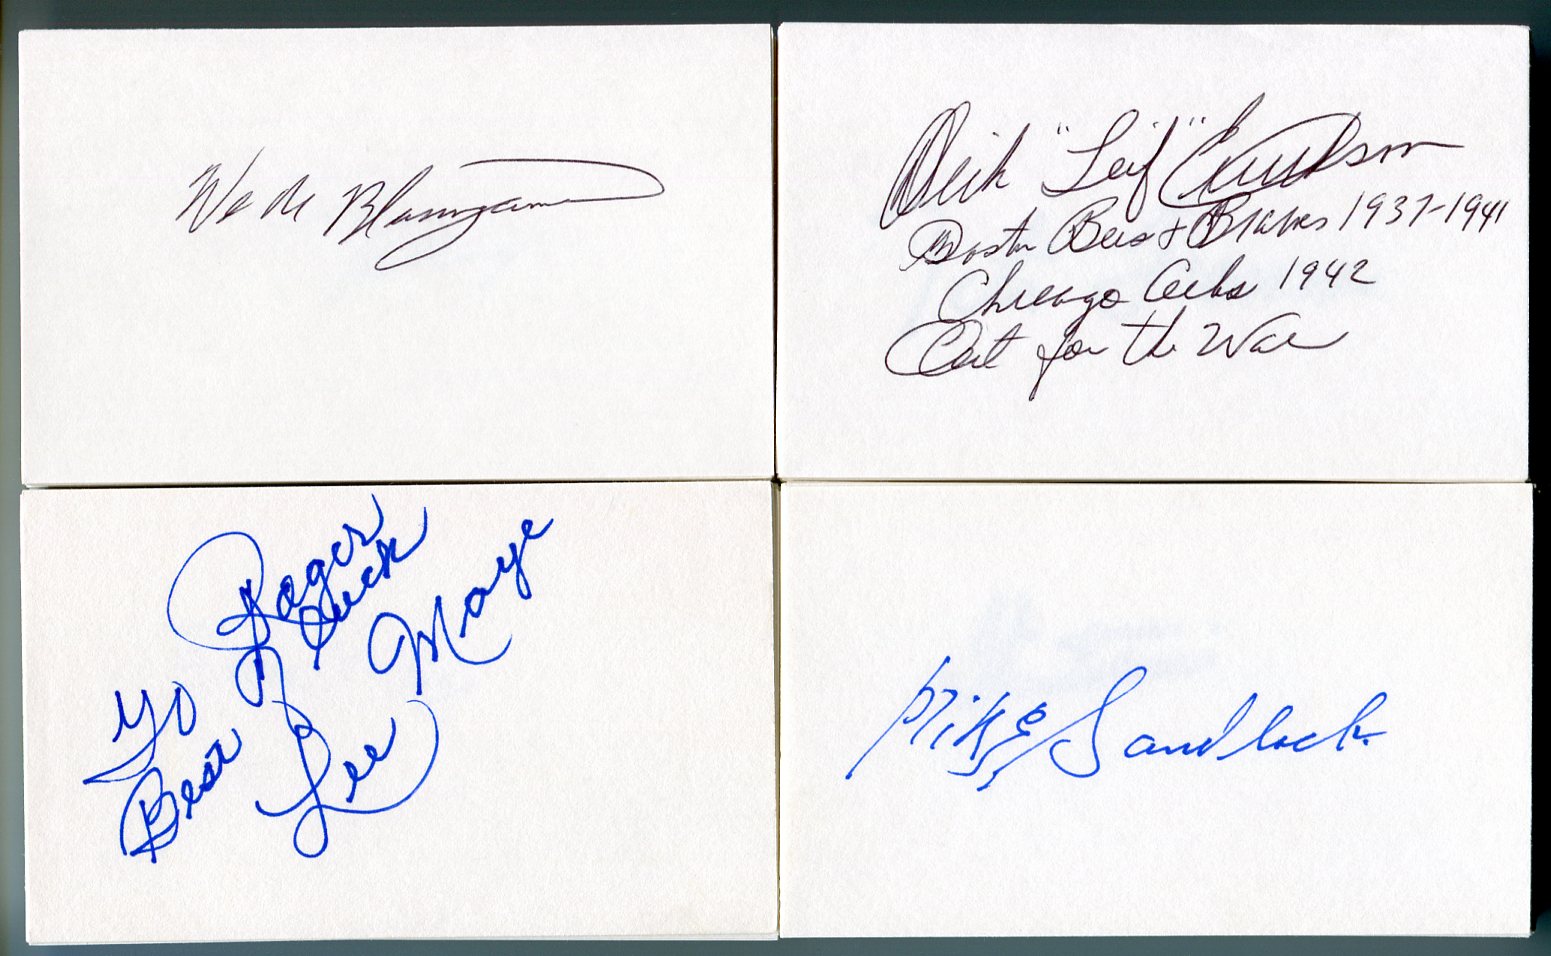 Wade Blasingame
Dick "Leif" Erickson
Boston Bees & Braves 1937-1941
Chicago Cubs 1942
Out for the War
To Roger
Best Luck
Lee Maye
Mike Sandlock